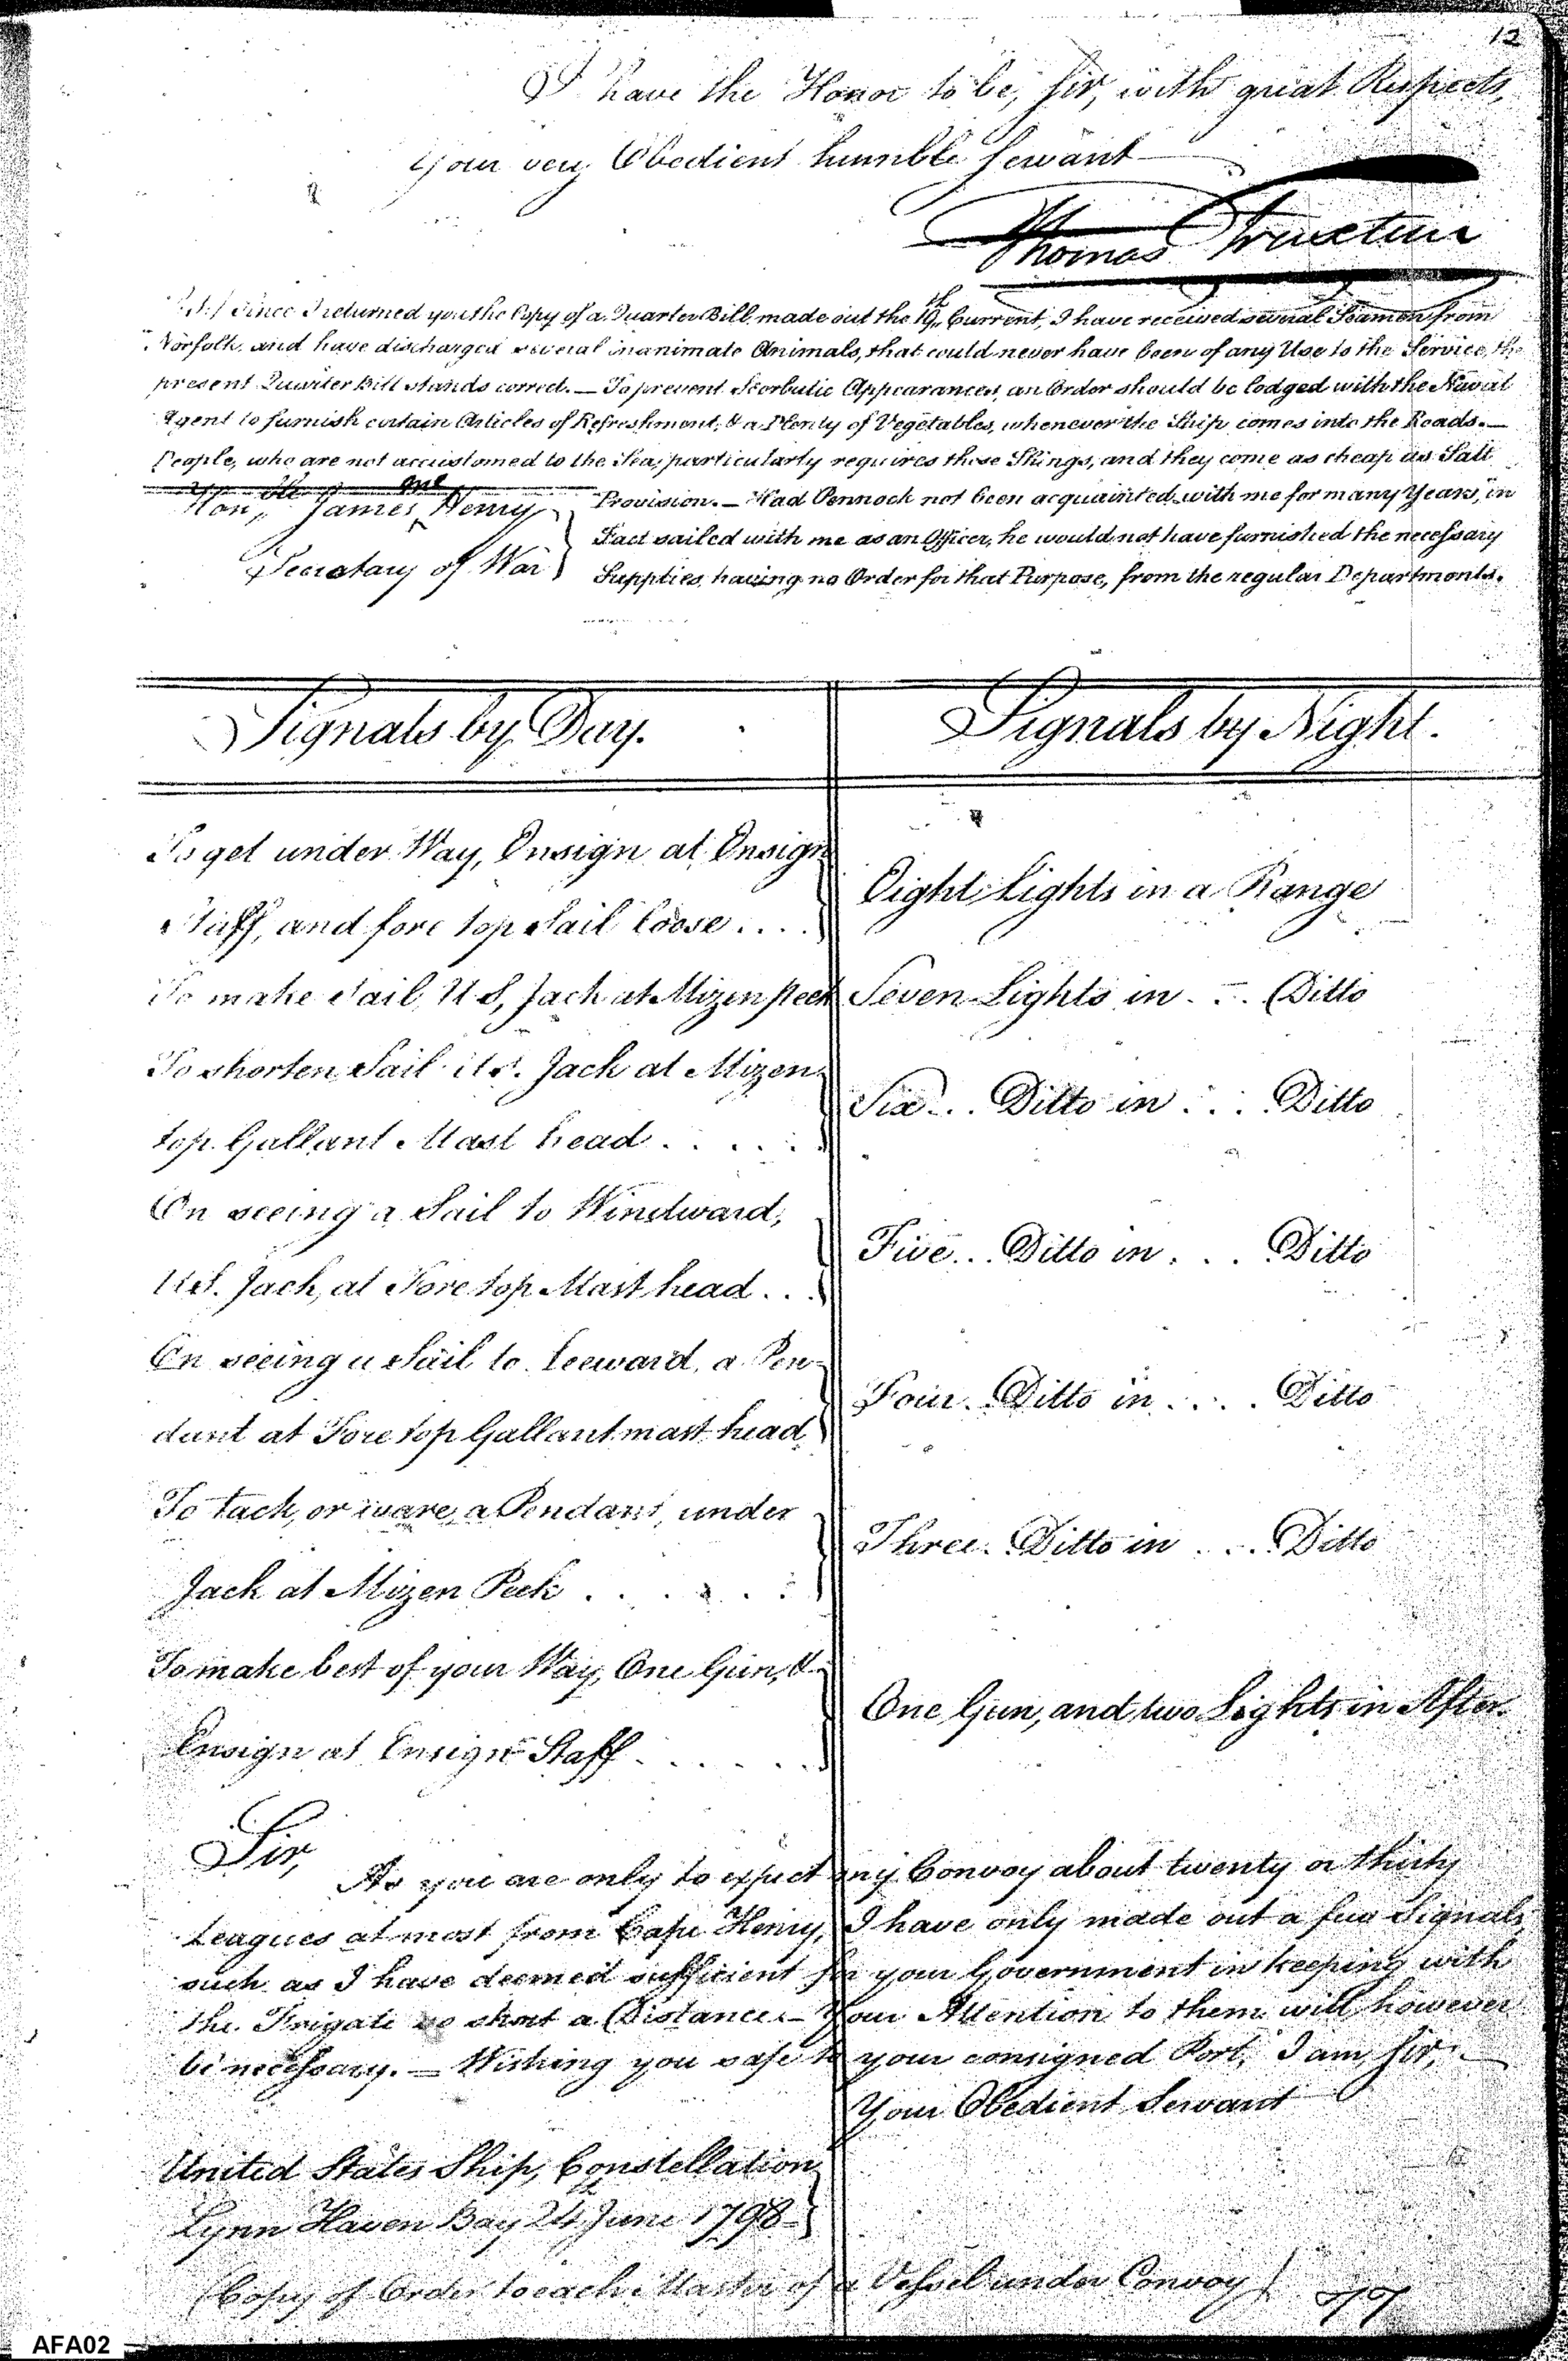 12
I have the Honor to be, Sir, with great Respects,
Your very Obedient humble Servant
Thomas Truxtun
P.S./ Since I returned you the Copy of a Quarter Bill made out the 19th Current, I have received several Seamen from
Norfolk, and have discharged several inanimate Animals, that could never have been of any Use to the Service, the
present Quarter Bill stands correct. — To prevent Scorbutic Appearances, an Order should be lodged with the Naval
Agent to furnish certain Articles of Refreshment, & a Plenty of Vegetables, whenever the Ship comes into the Roads. —
People, who are not accustomed to the Sea, particularly requires those Things, and they come as cheap as Salt
Provision. — Had Pennock not been acquainted with me for many Years, in
Fact sailed with me as an Officer, he would not have furnished the necessary
Supplies, having no Order for that Purpose, from the regular Departments.
Hon.ble James Henry
Secretary of War
Signals by Day.
Signals by Night.
To get under Way, Ensign at Ensign
Staff, and fore top Sail loose . . . .
Eight Lights in a Range
To make Sail, U S, Jack at Mizen peek
Seven Lights in . . . Ditto
To shorten Sail U.S. Jack at Mizen
top Gallant Mast head . . . . .
Six . . . Ditto in . . . . Ditto
On seeing a Sail to Windward,
U.S. Jack, at Fore top Mast head . . .
Five . . . Ditto in . . . Ditto
On seeing a Sail to Leeward, a Pen-
dant at Fore top Gallant mast head
Four . . Ditto in . . . . Ditto
To tack, or ware, a Pendant, under
Jack at Mizen Peek . . . . . .
Three . . Ditto in . . . . Ditto
To make best of your Way, One Gun, &
Ensign at Ensign Staff . . . . . .
One Gun, and two Lights in After
Sir,
As you are only to expect my Convoy about twenty or thirty
Leagues at most from Cape Henry, I have only made out a few Signals
such as I have deemed sufficient for your Government in keeping with
the Frigate so short a Distance. — Your Attention to them will however
be necessary. — Wishing you safe to your consigned Port, I am, Sir, —
Your Obedient Servant
United States Ship, Constellation
Lynn Haven Bay 24th June 1798
(Copy of Order to each Master of a Vessel under Convoy)
AFA02